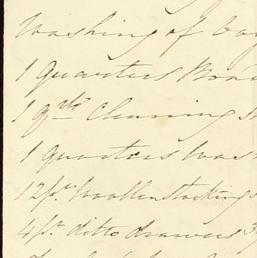 Washing of
1 Quarters
1 Qrts Cleaning
1 quarters Wash
12 pr. Woollen Stockings
4 pr. ditto drawers